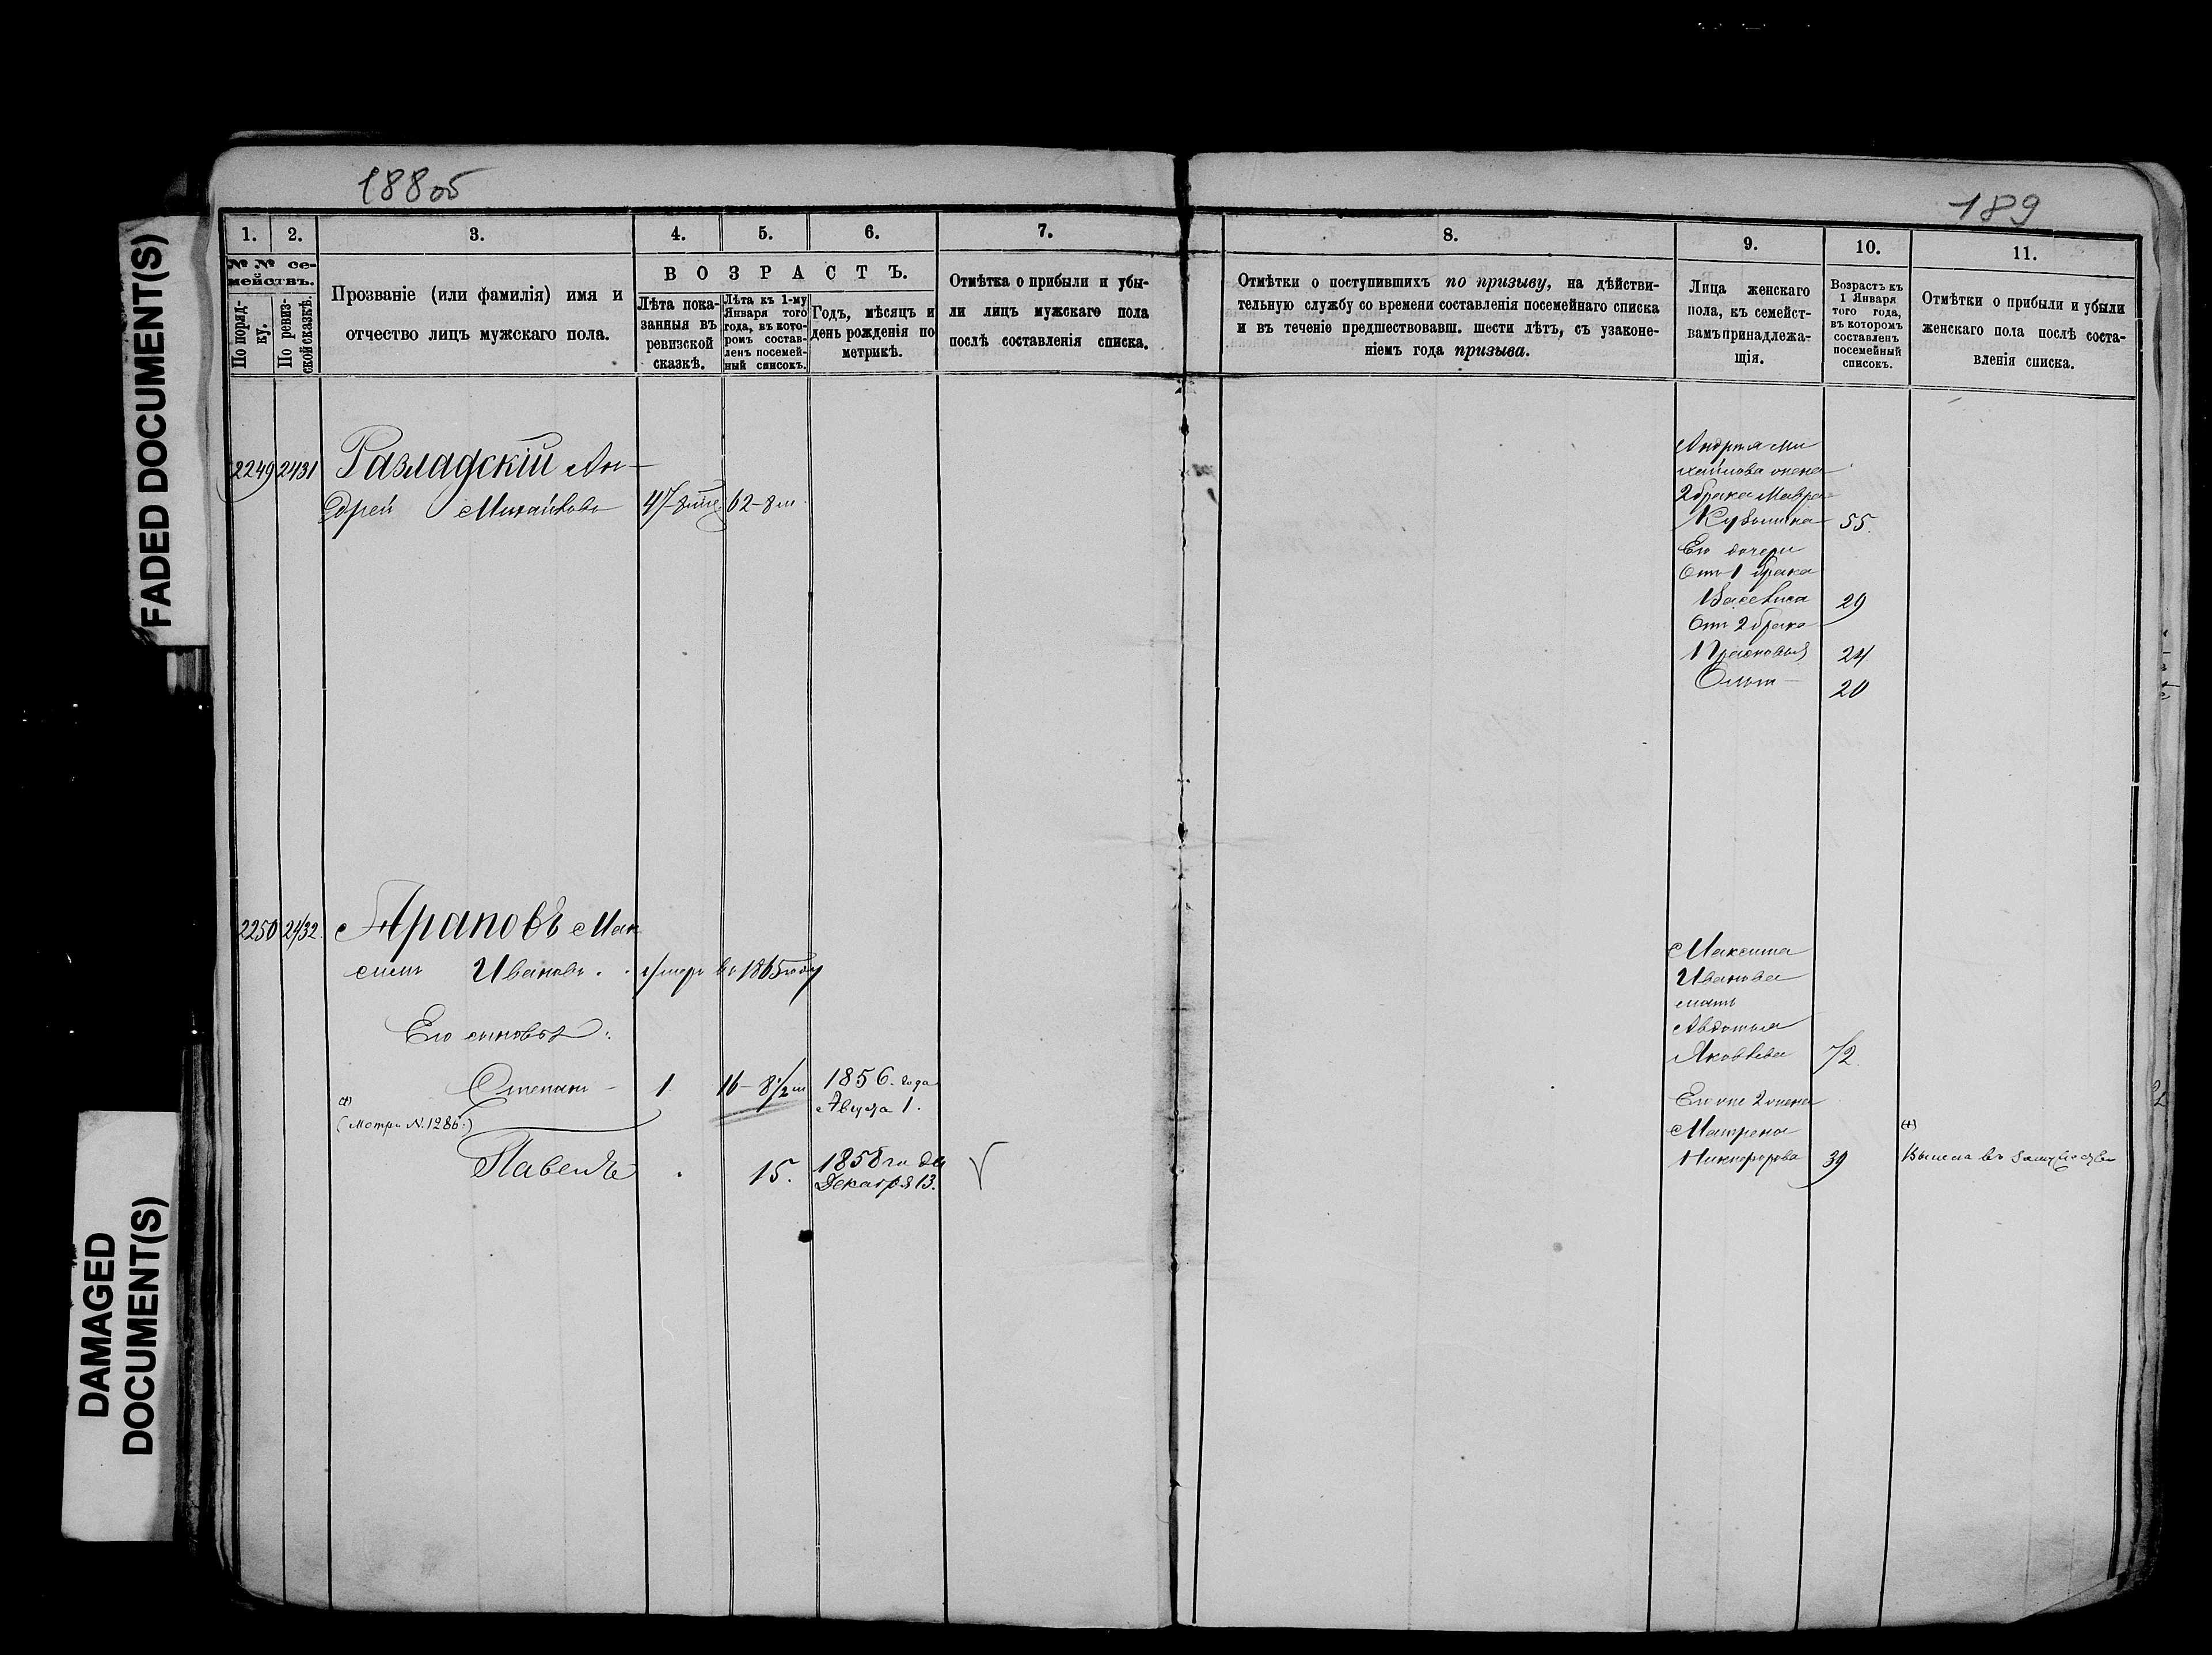 FADED DOCUMENT(S)
DAMAGED
DOCUMENT(S)
188 об
189
1. 2. 3. 4. 5. 6. 7. 8. 9. 10. 11.
№ № се-
мействъ.
По поряд-
ку.
По ревиз-
ской сказкѣ.
Прозваніе (или фамилія) имя и
отчество лицъ мужскаго пола.
ВОЗРАСТЪ.
Лѣта пока-
занныя въ
ревизской
сказкѣ.
Лѣта къ 1-му
Января того
года, въ кото-
ромъ состав-
ленъ посемей-
ный списокъ.
Годъ, мѣсяцъ и
день рожденія по
метрикѣ.
Отмѣтка о прибыли и убы-
ли лицъ мужскаго пола
послѣ составленія списка.
Отмѣтки о поступившихъ по призыву, на дѣйстви-
тельную службу со времени составленія посемейнаго списка
и въ теченіе предшествовавш. шести лѣтъ, съ узаконе-
ніемъ года призыва.
Лица женскаго
пола, къ семейст-
вамъ принадлежа-
щія.
Возрастъ къ
1 Января
того года,
въ которомъ
составленъ
посемейный
списокъ.
Отмѣтки о прибыли и убыли
женскаго пола послѣ соста-
вленія списка.
2249 2431 Разладскій Ан-
дрей Михайловъ 47 62-8 м.
Андрея Ми
хайлова жена
2 брака Мавра
55.
Его дочери
Отъ 1 брака
Василиса 29
Отъ 2 брака
Прасковья 24
20
2250 2432. Араповъ Мак
симъ Ивановъ умеръ въ 1865 году
Его сыновья:
Степанъ 1 16-8½ м 1856 года
Августа 1.
(+)
(Мотри N. 1286.)
Павелъ 15. 1858 года
Декабря 13.
Максима
Иванова
мать
Авдотья
Яковлева 72.
Его жена
Матрена
Никифорова 39
(+)
Вышла въ замужество